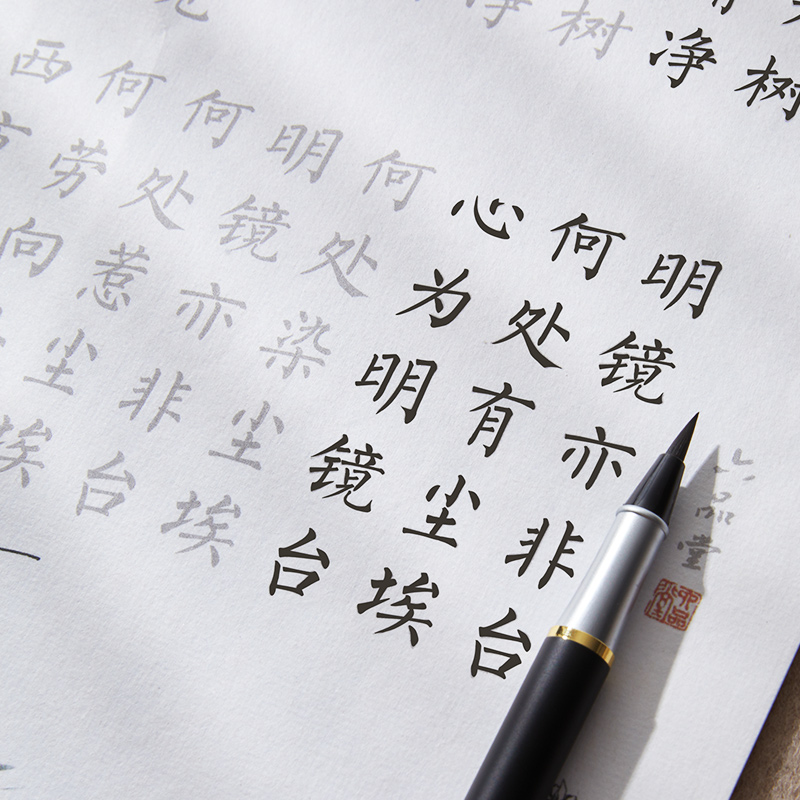 树
净
树
净
明镜亦非台
何处有尘埃
心为明镜台
何处染尘埃
明镜亦非台
何处惹尘埃
何劳向
西方
六品堂